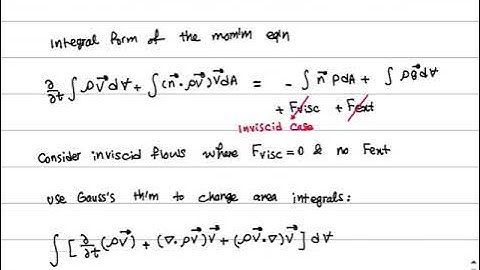 Integral form of the mom'm eqn
∂/∂t ∫ ρV⃗ dV + ∫ (n⃗ · ρV⃗) V⃗ dA = - ∫ n⃗ p dA + ∫ ρg⃗ dV
+ Fvisc + Fext
Inviscid case
Consider inviscid flows where Fvisc = 0 & no Fext
Use Gauss's th'm to change area integrals:
∫ [ ∂/∂t (ρV⃗) + (∇ · ρV⃗) V⃗ + (ρV⃗ · ∇) V⃗ ] dV